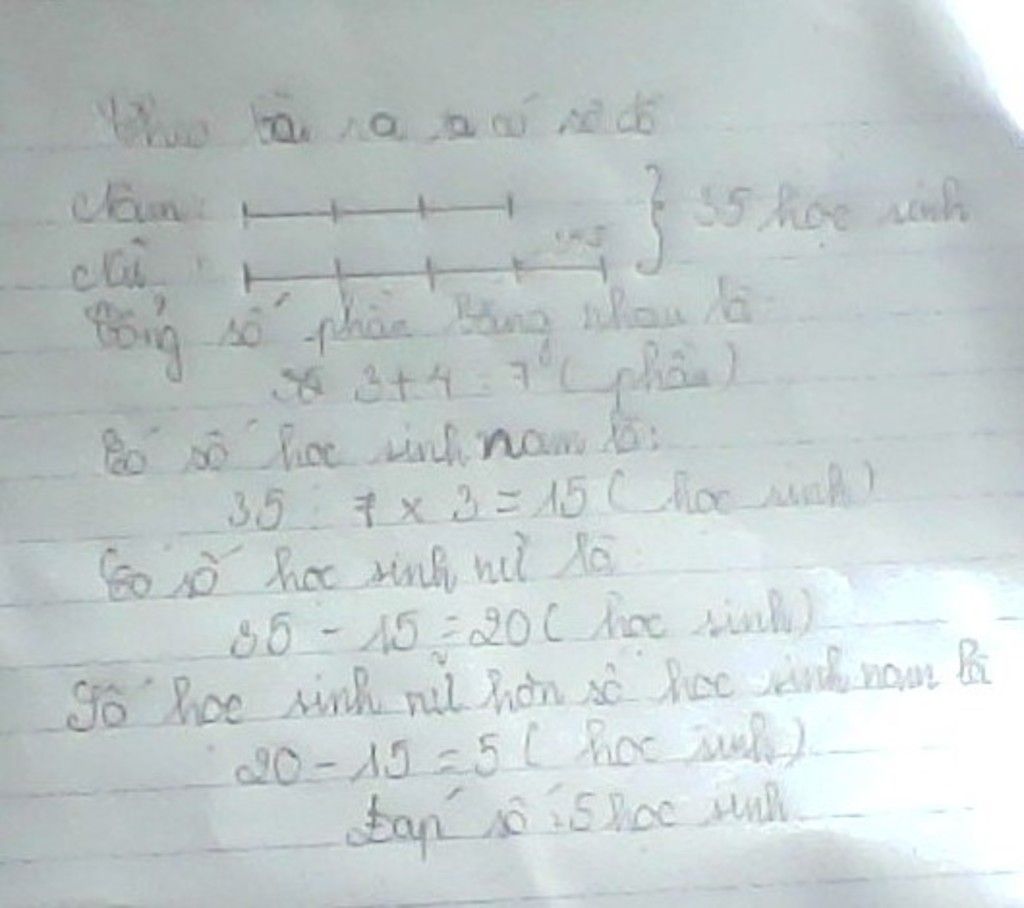 Theo bài ra ta có sơ đồ
Nam:
35 học sinh
Nữ:
Tổng số phần bằng nhau là
3 + 4 = 7 (phần)
Có số học sinh nam là:
35 : 7 x 3 = 15 ( học sinh)
Có số học sinh nữ là
35 - 15 = 20 ( học sinh)
Số học sinh nữ hơn số học sinh nam là
20 - 15 = 5 ( học sinh)
Đáp số : 5 học sinh